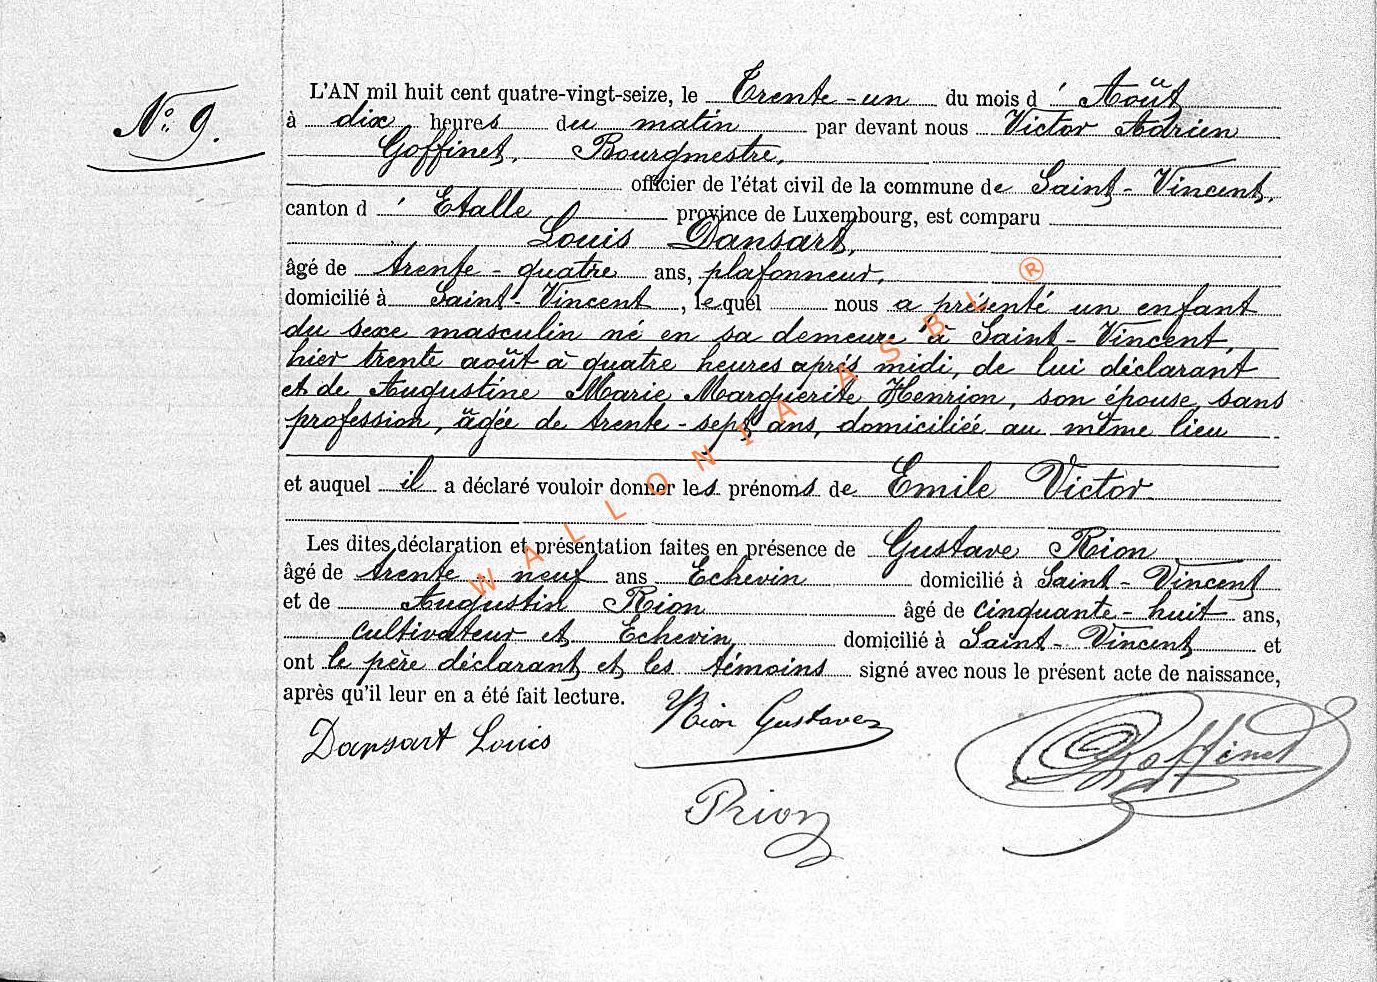 N° 9.
L'AN mil huit cent quatre-vingt-seize, le Trente-un du mois d' Août
à dix heures du matin par devant nous Victor Adrien
Goffinet, Bourgmestre,
officier de l'état civil de la commune de Saint-Vincent,
canton d' Etalle province de Luxembourg, est comparu
Louis Dansart,
âgé de trente-quatre ans, plafonneur,
domicilié à Saint-Vincent, lequel nous a présenté un enfant
du sexe masculin né en sa demeure à Saint-Vincent,
hier trente août à quatre heures après midi, de lui déclarant
et de Augustine Marie Marguerite Henrion, son épouse, sans
profession, âgée de trente-sept ans, domiciliée au même lieu
et auquel il a déclaré vouloir donner les prénoms de Emile Victor
Les dites déclaration et présentation faites en présence de Gustave Rion
âgé de trente neuf ans Echevin domicilié à Saint-Vincent
et de Augustin Rion âgé de cinquante-huit ans,
cultivateur et Echevin, domicilié à Saint-Vincent et
ont le père déclarant et les témoins signé avec nous le présent acte de naissance,
après qu'il leur en a été fait lecture.
Dansart Louis
Rion Gustave
Goffinet
Rion
WALLONIA ASBL ®